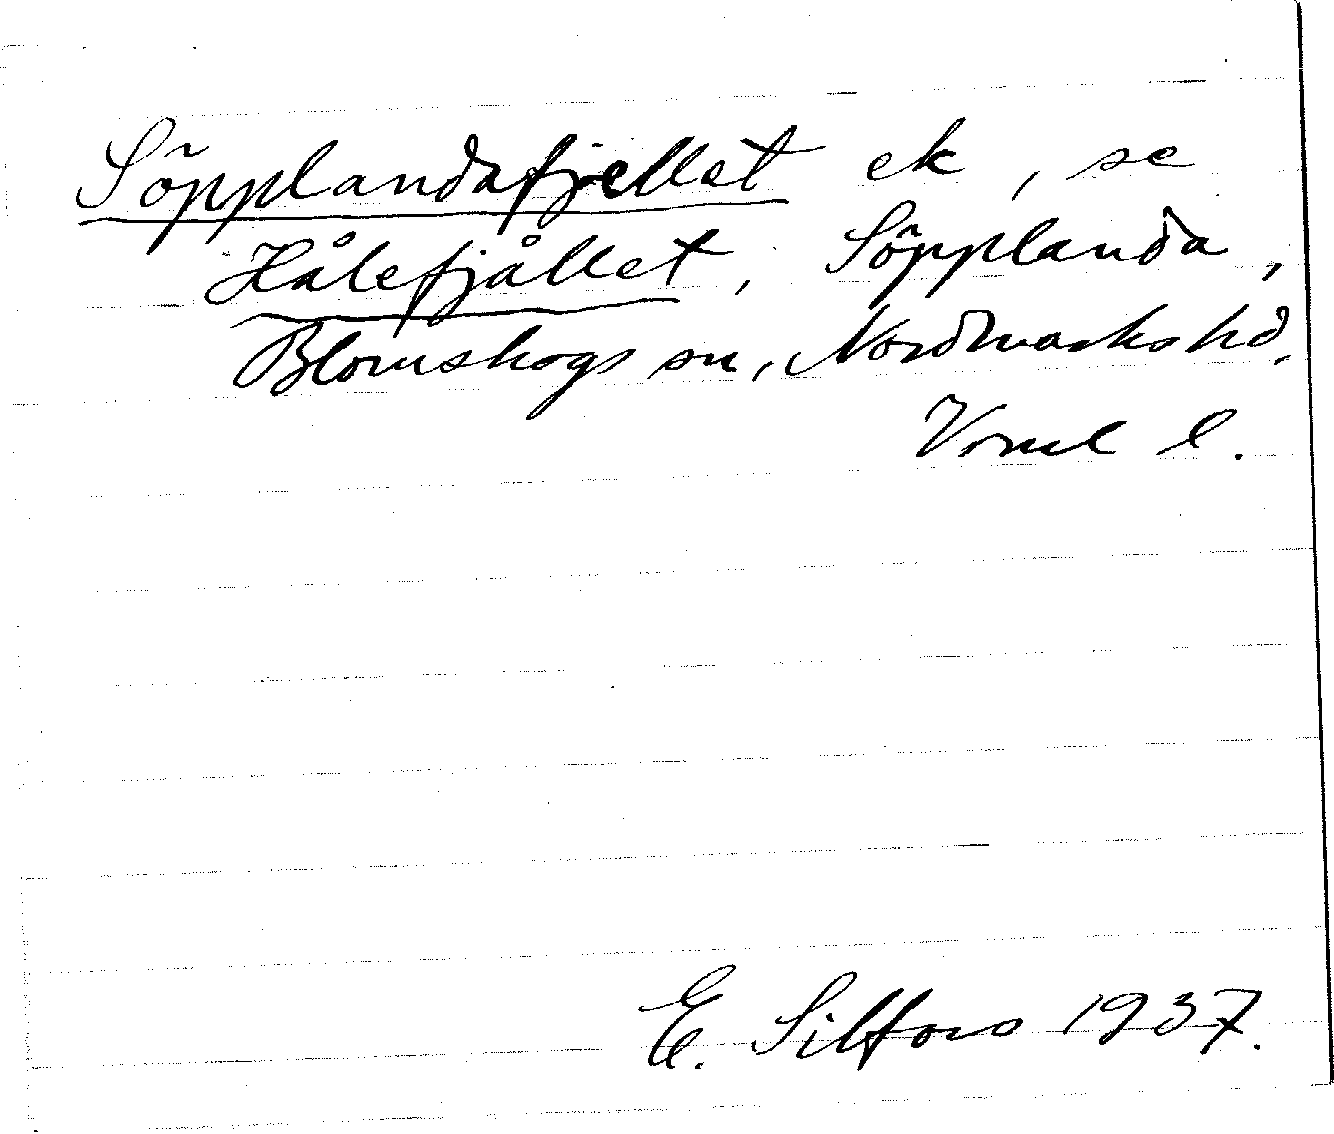 Söpplandafjellet ek, se
Hålefjållet, Söpplanda,
Blomskogs sn, Nordmarks hd.
Vrml l.
E. Silfors 1937.